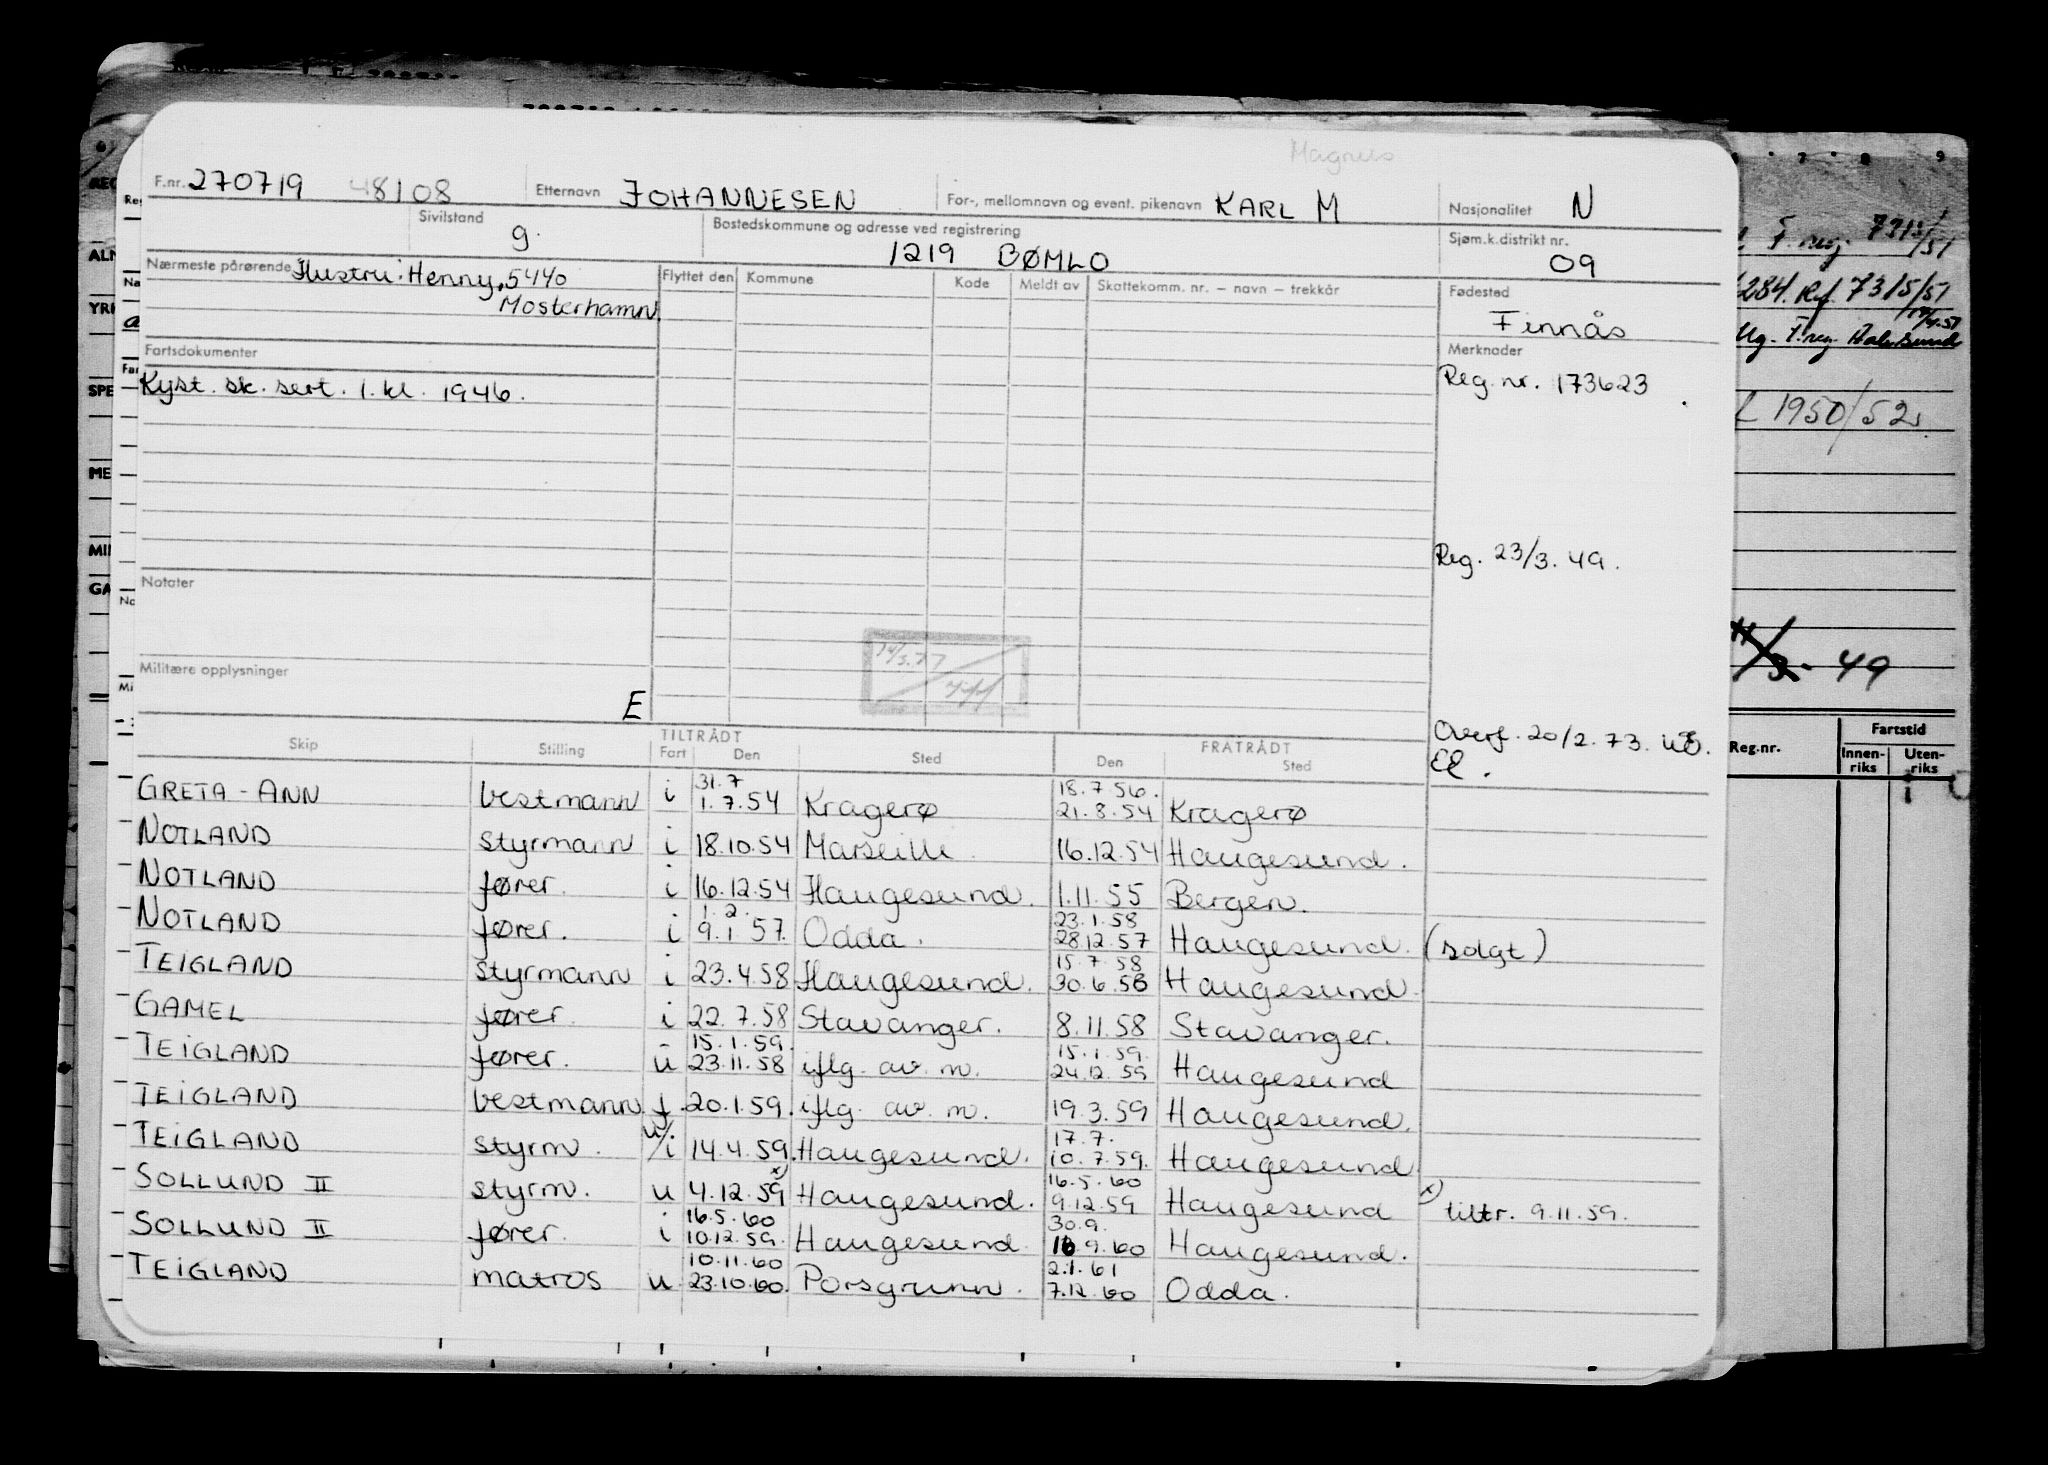 Magnus
F.nr. 270719 48108 Etternavn JOHANNESEN For-, mellomnavn og event. pikenavn KARL M Nasjonalitet N
Sivilstand g. Bostedskommune og adresse ved registrering 1219 BØMLO Sjøm.k.distrikt nr. 09
Nærmeste pårørende Hustru: Henny, 5440 Flyttet den Kommune Kode Meldt av Skattekomm. nr. – navn – trekkår Fødested
Mosterhamn Finnås
Fartsdokumenter Merknader
Kyst. sk. sert. 1. kl. 1946. Reg. nr. 173623
Reg. 23/3. 49.
Notater
Militære opplysninger
E
Overf. 20/2. 73.
El.
Skip Stilling TILTRÅDT Fart Den Sted FRATRÅDT Den Sted
31.7 18.7.56.
GRETA-ANN bestmann i 1.7.54 Kragerø 21.8.54 Kragerø
NOTLAND styrmann i 18.10.54 Marseille 16.12.54 Haugesund.
NOTLAND fører. i 16.12.54 Haugesund. 1.11.55 Bergen.
1.2. 23.1.58
NOTLAND fører. i 9.1.57. Odda. 28.12.57 Haugesund. (solgt)
15.7.58
TEIGLAND styrmann i 23.4.58 Haugesund. 30.6.58 Haugesund.
GAMEL fører. i 22.7.58 Stavanger. 8.11.58 Stavanger.
15.1.59. 15.1.59.
TEIGLAND fører. u 23.11.58 iflg. av. m. 24.12.59 Haugesund
TEIGLAND bestmann f. 20.1.59. iflg. av. m. 19.3.59 Haugesund.
17.7.
TEIGLAND styrm. u/i 14.4.59. Haugesund. 10.7.59. Haugesund
16.5.60
SOLLUND II styrm. u 4.12.59 x) Haugesund. 9.12.59 Haugesund x) tiltr. 9.11.59.
16.5.60 30.9.
SOLLUND II fører. i 10.12.59. Haugesund 16.9.60 Haugesund.
10.11.60 2.1.61
TEIGLAND matros u. 23.10.60. Porsgrunn. 7.12.60 Odda.
F. reg.
284. Ref. 7315/51
F. reg. Aalesund
1950/52
49
Reg.nr. Fartstid
Innen-riks Uten-riks